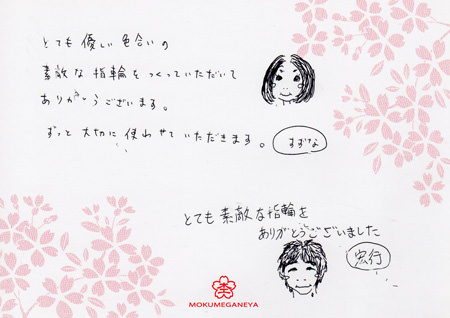 とても 優しい 色合いの
素敵な 指輪を つくっていただいて
ありがとうございます。
ずっと 大切に 使わせていただきます。
すずな
とても 素敵な指輪を
ありがとうございました
宏行
MOKUMEGANEYA